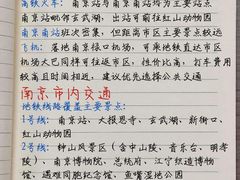 高铁火车：南京站与南京南站均为主要站点
南京站毗邻玄武湖，出站可前往红山动物园
南京南站班次密集，但距离市区主要景点较远
飞机：落地南京禄口机场，可乘地铁直达市区
机场大巴同样可往返市区，性价比高；打车费用
较高且时间相近，建议优先选择公共交通
南京市内交通
地铁线路覆盖主要景点：
1号线：南京站、大报恩寺、玄武湖、新街口、
红山动物园
2号线：钟山风景区（含中山陵、音乐台、明孝
陵）、南京博物院、总统府、江宁织造博物
馆、遇难同胞纪念馆、鱼嘴湿地公园